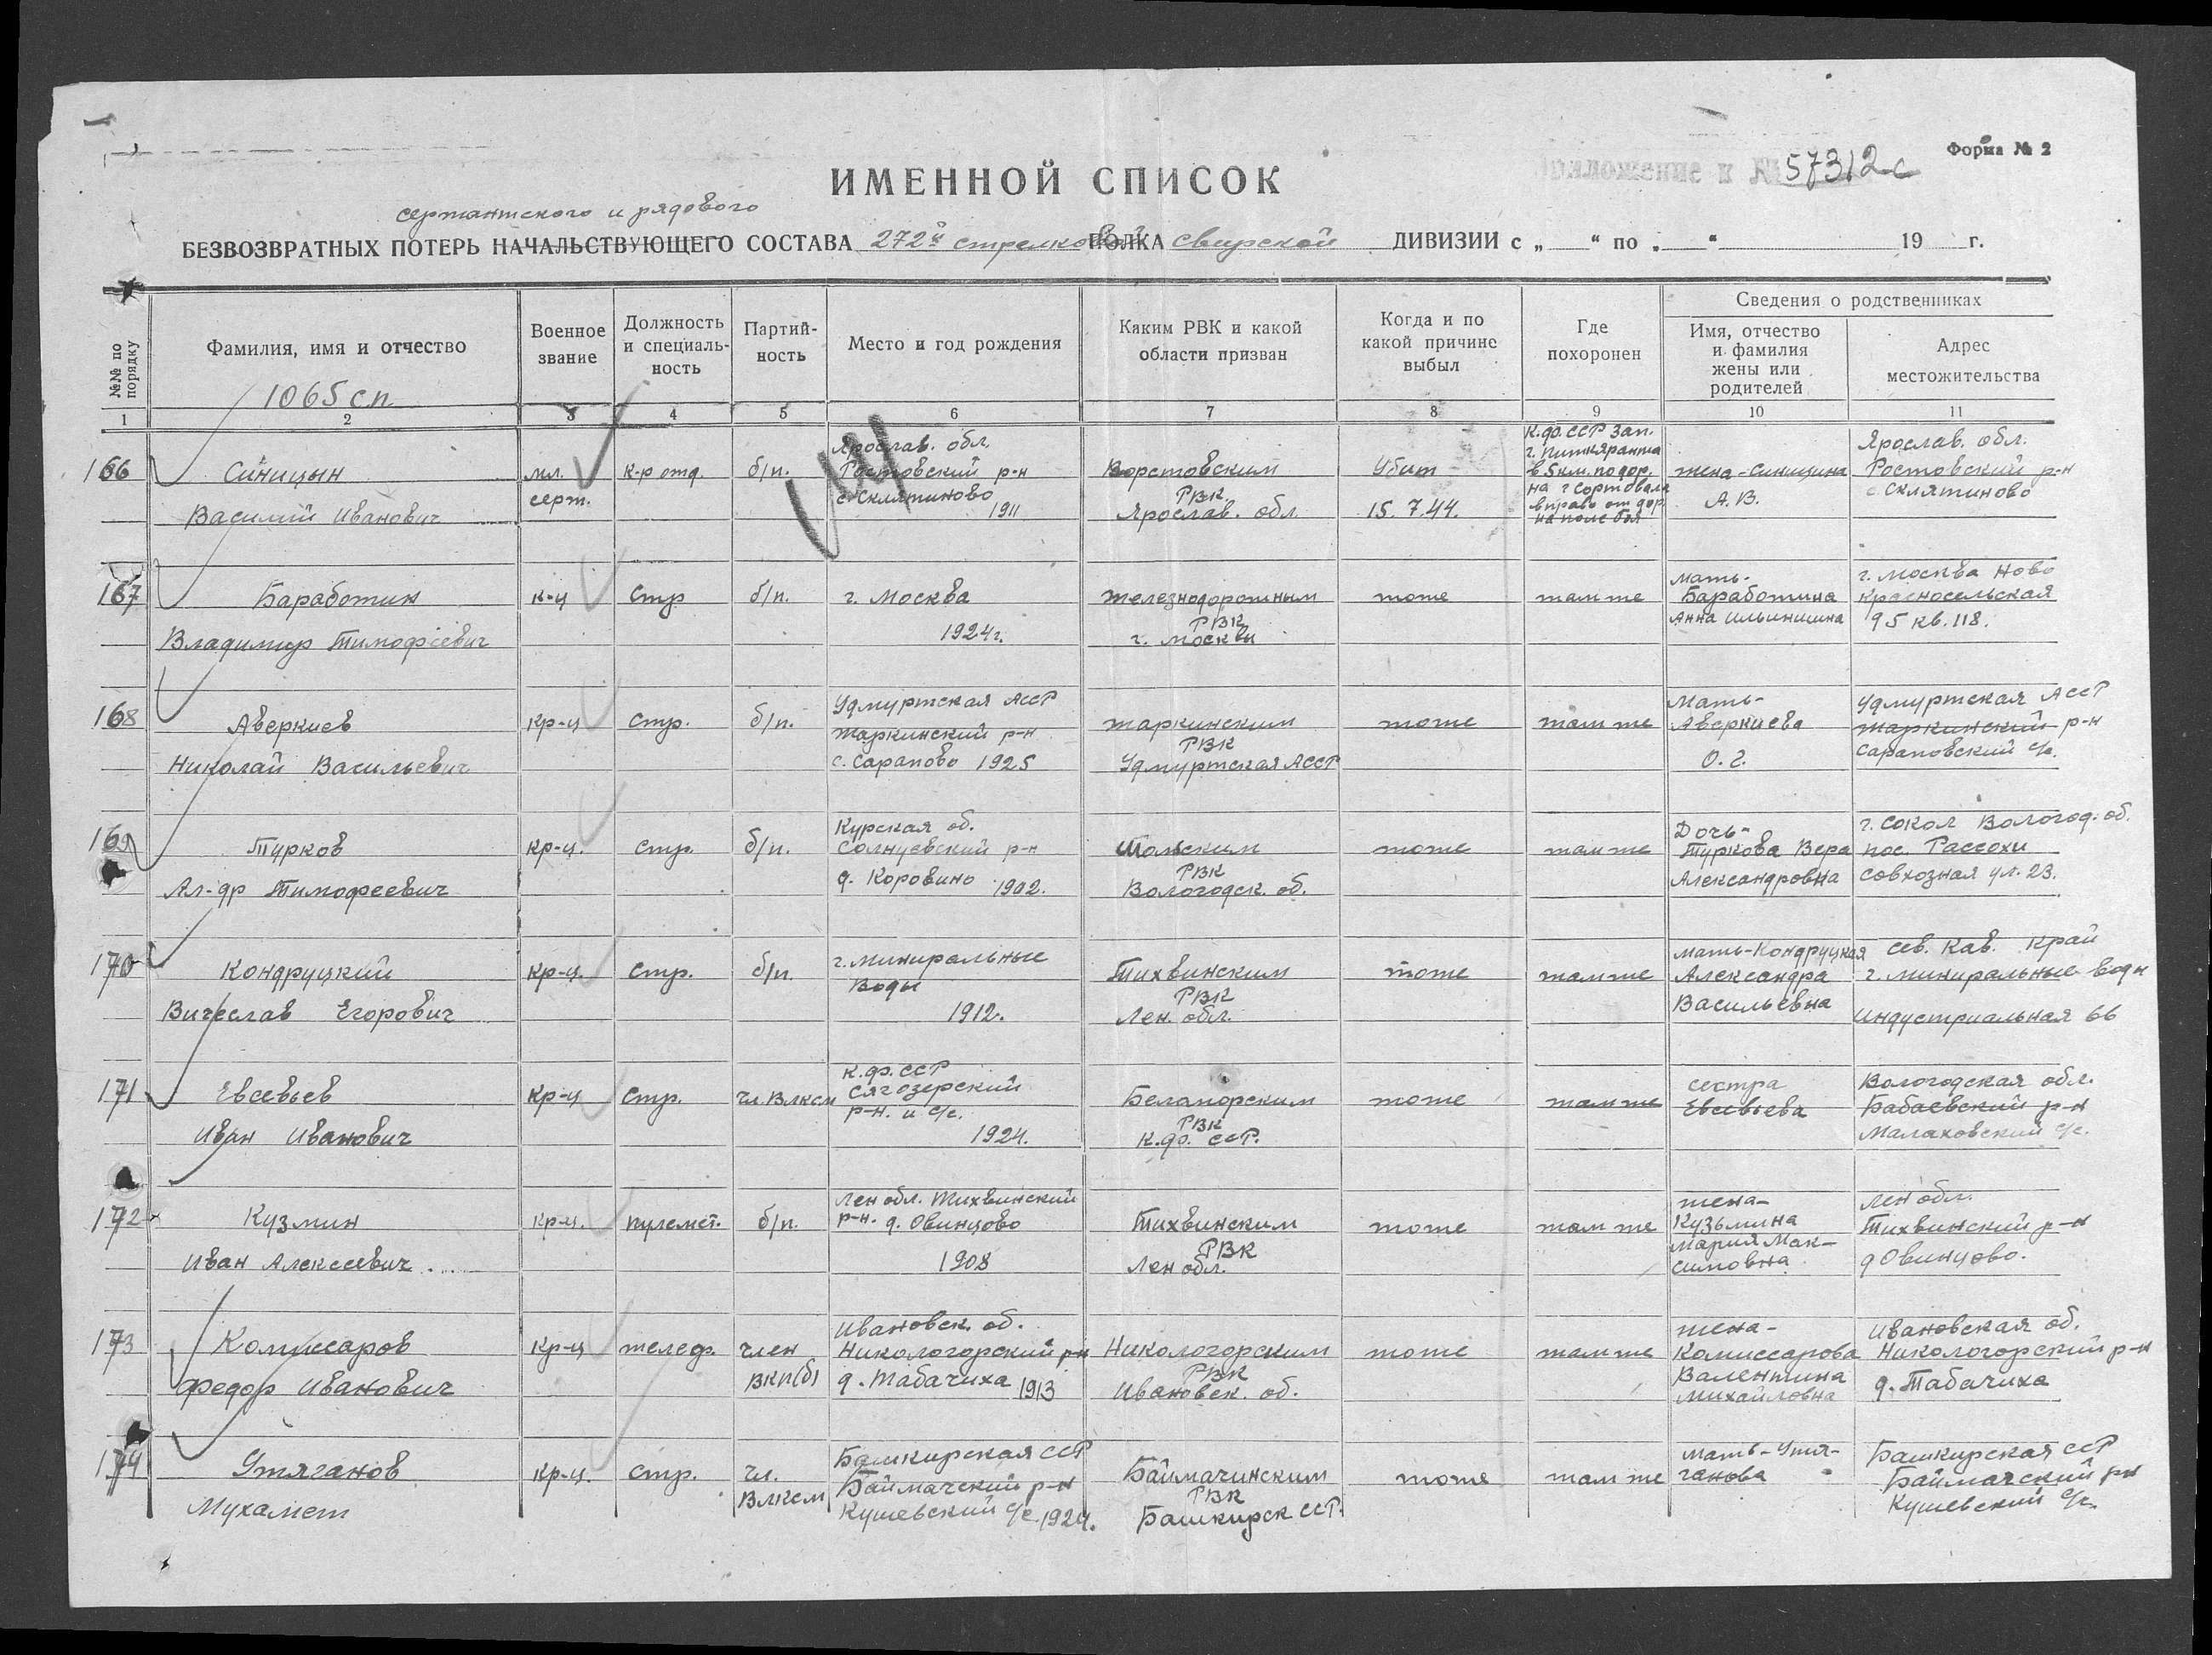 Форма № 2
Приложение к № 57312с
ИМЕННОЙ СПИСОК
сержантского и рядового
БЕЗВОЗВРАТНЫХ ПОТЕРЬ НАЧАЛЬСТВУЮЩЕГО СОСТАВА 272й стрелковой ПОЛКА свирской ДИВИЗИИ с „ “ по „ “ 19 г.
№№ по порядку
Фамилия, имя и отчество
Военное звание
Должность и специальность
Партийность
Место и год рождения
Каким РВК и какой области призван
Когда и по какой причине выбыл
Где похоронен
Сведения о родственниках
Имя, отчество и фамилия жены или родителей
Адрес местожительства
1065 сп
1 2 3 4 5 6 7 8 9 10 11
166
Синицын
Василий Иванович
мл.
серт.
к-р отд.
б/п.
Ярослав. обл.
Ростовский р-н
с. Склятиново
1911
Ворстовским
РВК
Ярослав. обл.
Убит
15.7.44.
К.ф.ССР Зап.
г. Питкяранта
в 5 км. по дор.
на г Сортовала
вправо от дор.
на поле боя
жена-Синицина
А.В.
Ярослав. обл.
Ростовский р-н
с. Склятиново
167
Баработин
Владимир Тимофеевич
к-ц
Стр
б/п.
г. Москва
1924г.
Железнодорожным
РВК
г. Москвы
тоже
там же
мать-
Баработина
Анна Ильинишна
г. Москва Ново
Красносельская
95 кв. 118.
168
Аверкиев
Николай Васильевич
кр-ц
стр.
б/п.
Удмуртская АССР
Жаркинский р-н
с. Сарапово 1925
Жаркинским
РВК
Удмуртская АССР
тоже
там же
Мать-
Аверкиева
О.Г.
Удмуртская АССР
Жаркинский р-н
Сараповский с/с.
169
Турков
Ал-др Тимофеевич
кр-ц.
стр.
б/п.
Курская об.
Солнцевский р-н
д. Коровино 1902.
РВК
Вологодск. об.
тоже
там же
Дочь-
Туркова Вера
Александровна
г. Сокол Вологод. об.
пос. Рассохи
Совхозная ул. 23.
170
Кондруцкий
Вичеслав Егорович
кр-ц.
Стр.
б/п.
г. Миниральные
Воды
1912.
Тихвинским
РВК
Лен. обл.
тоже
там же
мать-Кондруцкая
Александра
Васильевна
Сев. Кав. край
г. Миниральные воды
Индустриальная 66
171
Евсевьев
Иван Иванович
Кр-ц
Стр.
чл. Влксм
К.ф. ССР
Сягозерский
р-н. и с/с.
1924.
Беламорским
РВК
К.ф. ССР.
тоже
там же
сестра
Евсевьева
Вологодская обл.
Бабаевский р-н
Малаховский с/с.
172
Кузмин
Иван Алексеевич
Кр-ц.
пулемет.
б/п.
Лен обл. Тихвинский
р-н. д. Овинцово
1908
Тихвинским
РВК
Лен обл.
тоже
там же
жена-
Кузьмина
Мария Мак-
симовна
Лен обл.
Тихвинский р-н
д Овинцово.
173
Комиссаров
Федор Иванович
Кр-ц
телеф.
член
ВКП(б)
Ивановск. об.
Никологорский р-н
д. Табачиха 1913
Никологорским
РВК
Ивановск. об.
тоже
там же
жена-
Комиссарова
Валентина
Михайловна
Ивановская об.
Никологорский р-н
д. Табачиха
174
Утяганов
Мухамет
Кр-ц.
Стр.
чл.
Влксм
Башкирская ССР
Баймачский р-н
Кушевский с/с. 1924.
Баймачинским
РВК
Башкирск ССР.
тоже
там же
мать-Утя-
ганова
Башкирская ССР
Баймачский р-н
Кушевский с/с.